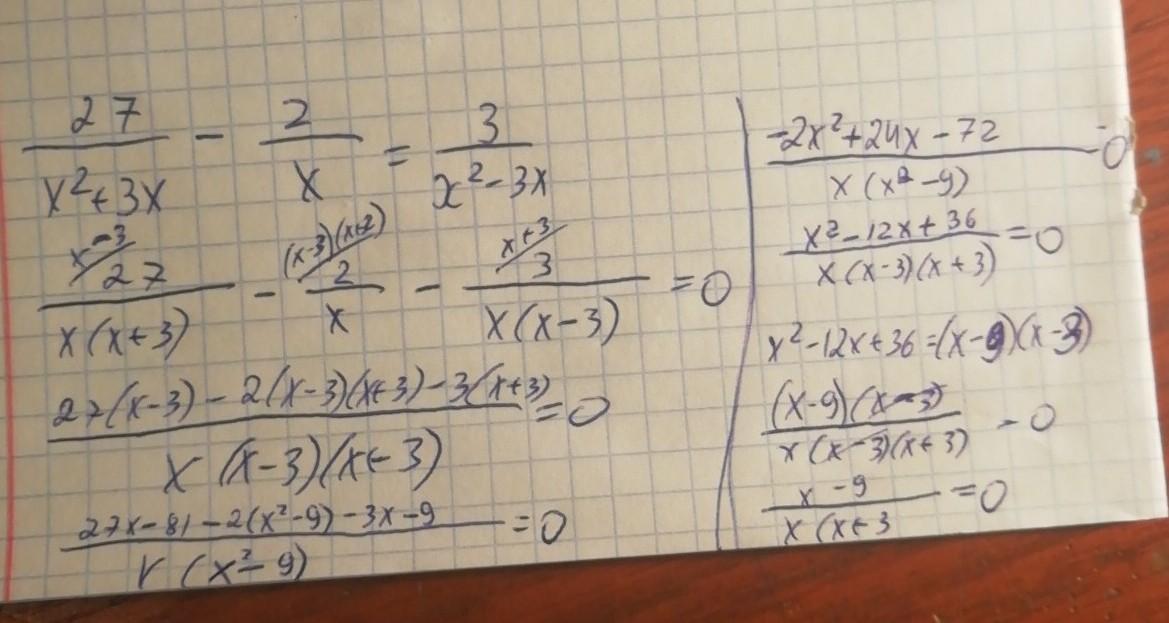 27/(x²+3x) - 2/x = 3/(x²-3x)
x-3/ 27/(x(x+3)) - (x-3)(x+3)/ 2/x - x+3/ 3/(x(x-3)) = 0
(27(x-3) - 2(x-3)(x+3) - 3(x+3))/(x(x-3)(x+3)) = 0
(27x-81-2(x²-9)-3x-9)/(x(x²-9)) = 0
(-2x²+24x-72)/(x(x²-9)) = 0
(x²-12x+36)/(x(x-3)(x+3)) = 0
x²-12x+36=(x-9)(x-3)
((x-9)(x-3))/(x(x-3)(x+3)) = 0
(x-9)/(x(x+3) = 0